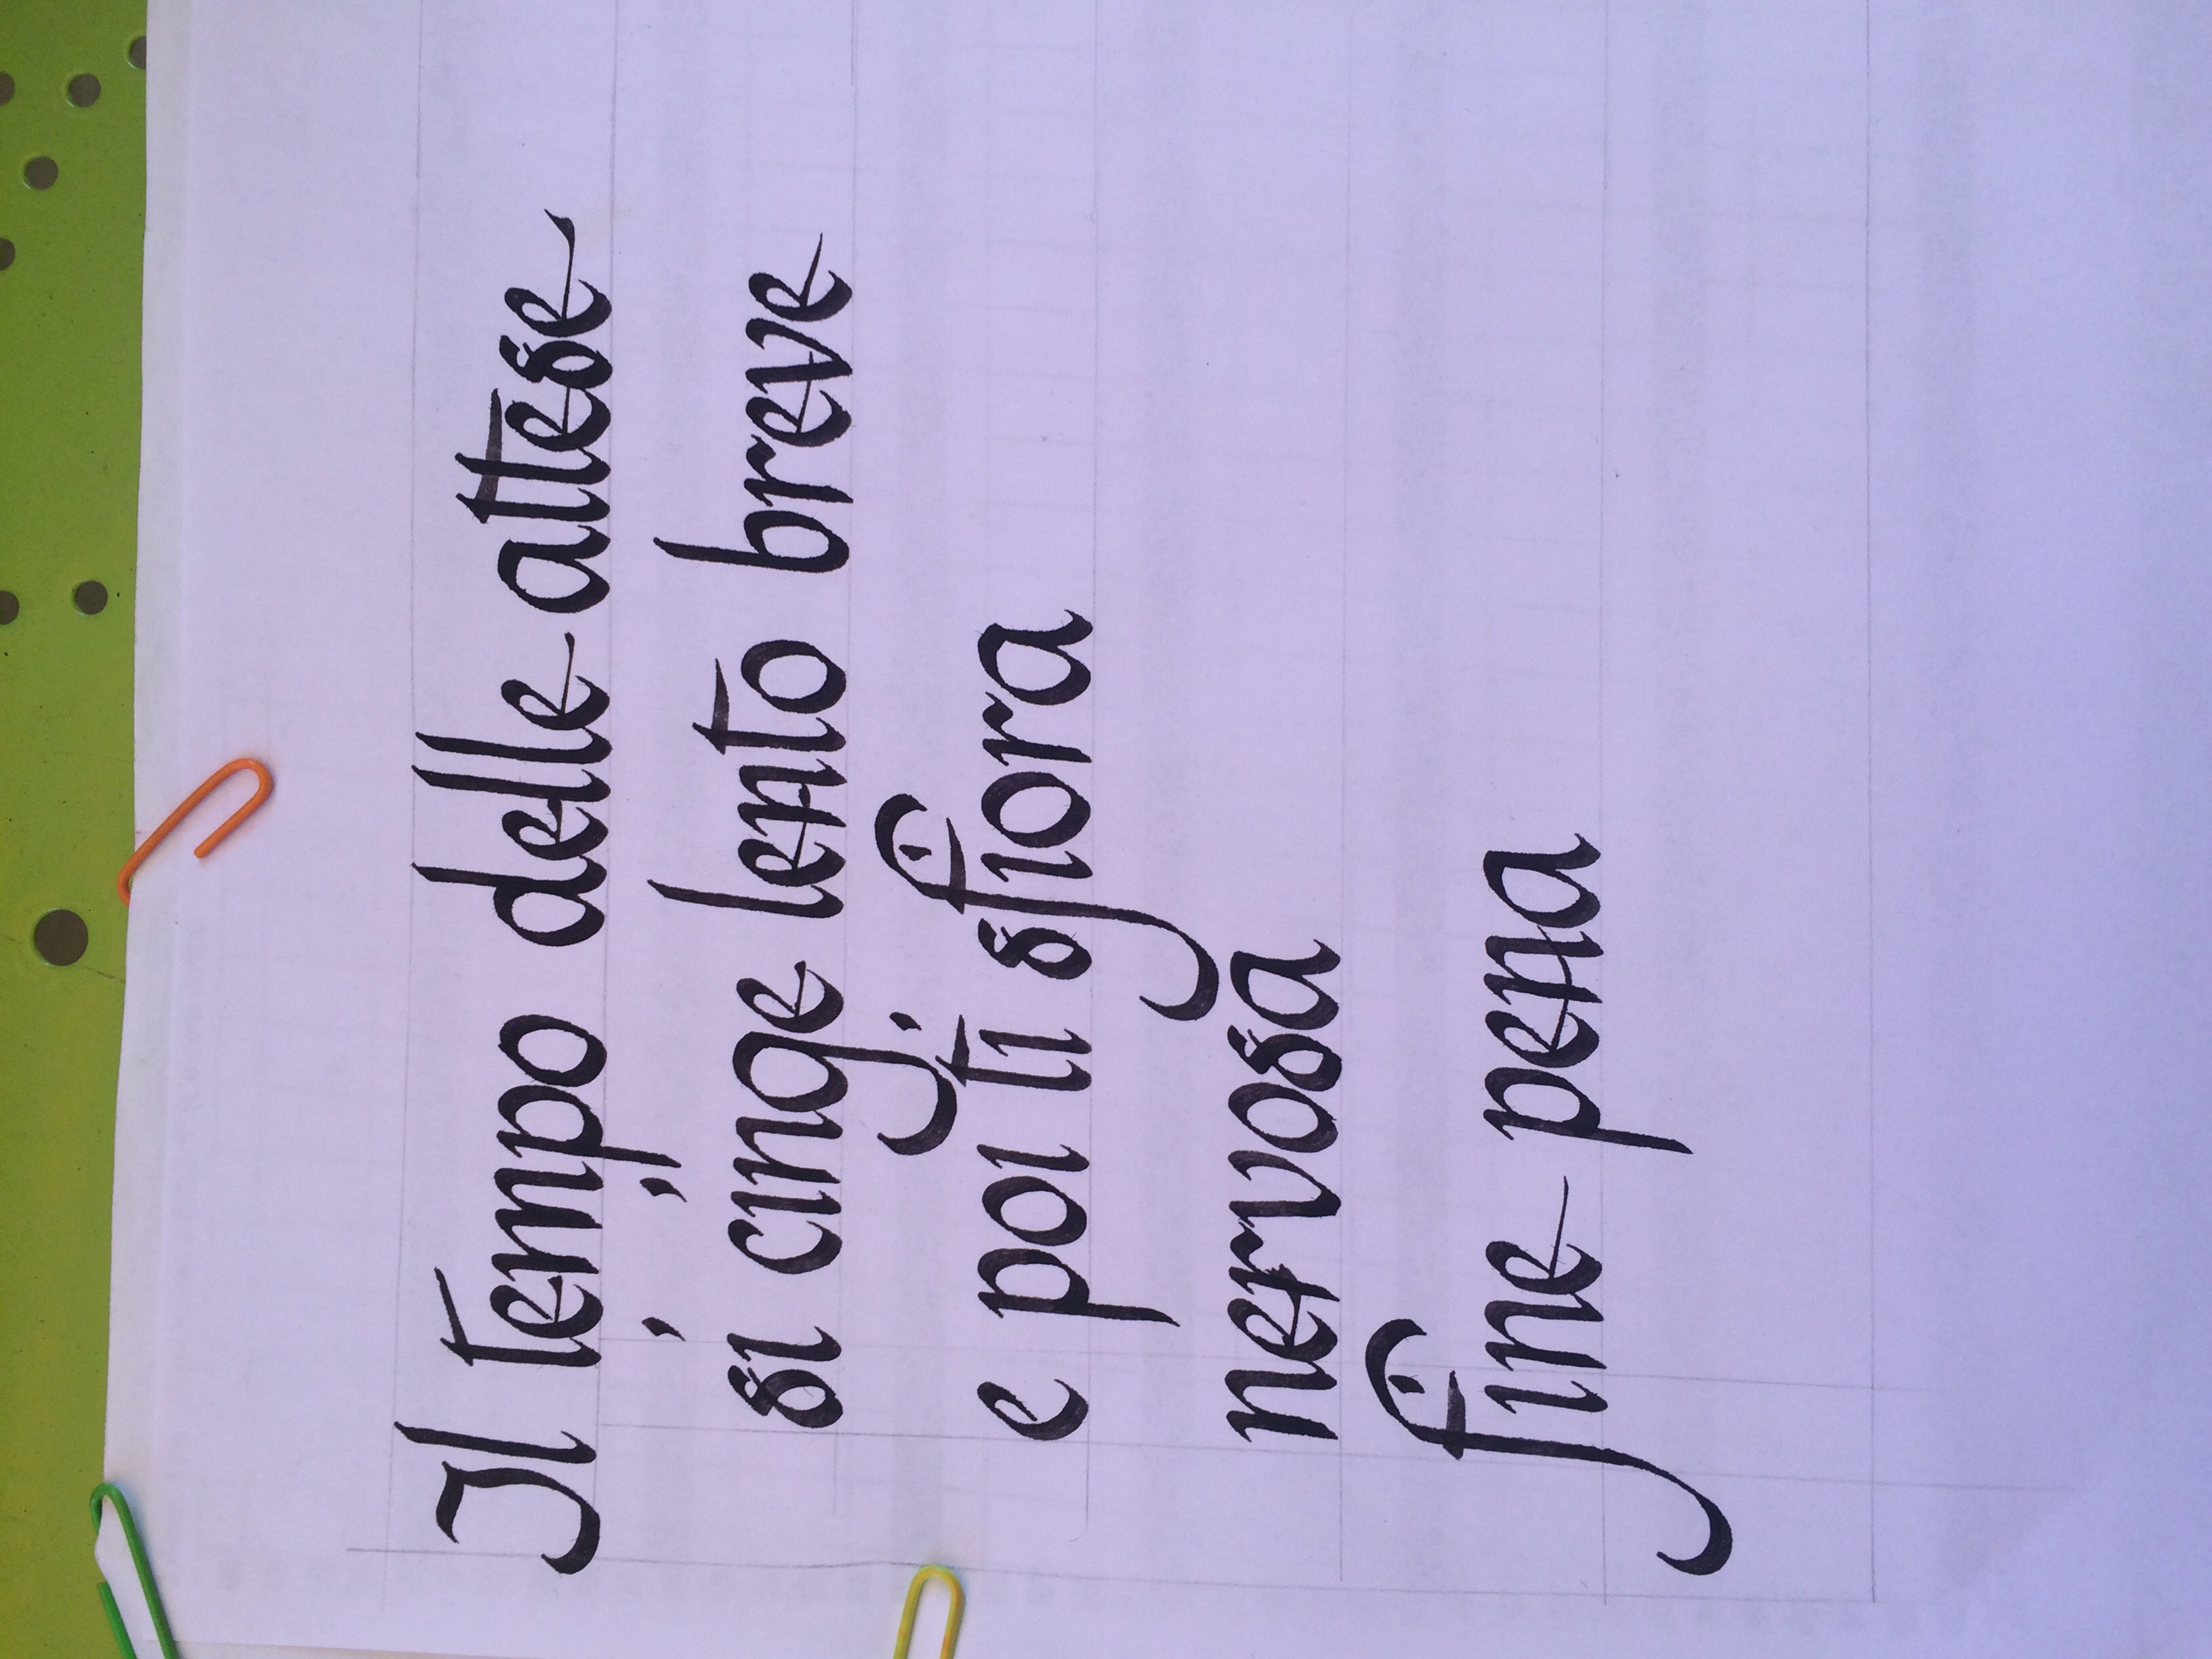 Il tempo delle attese
si cinge lento breve
e poi ti sfiora
nervosa
fine pena